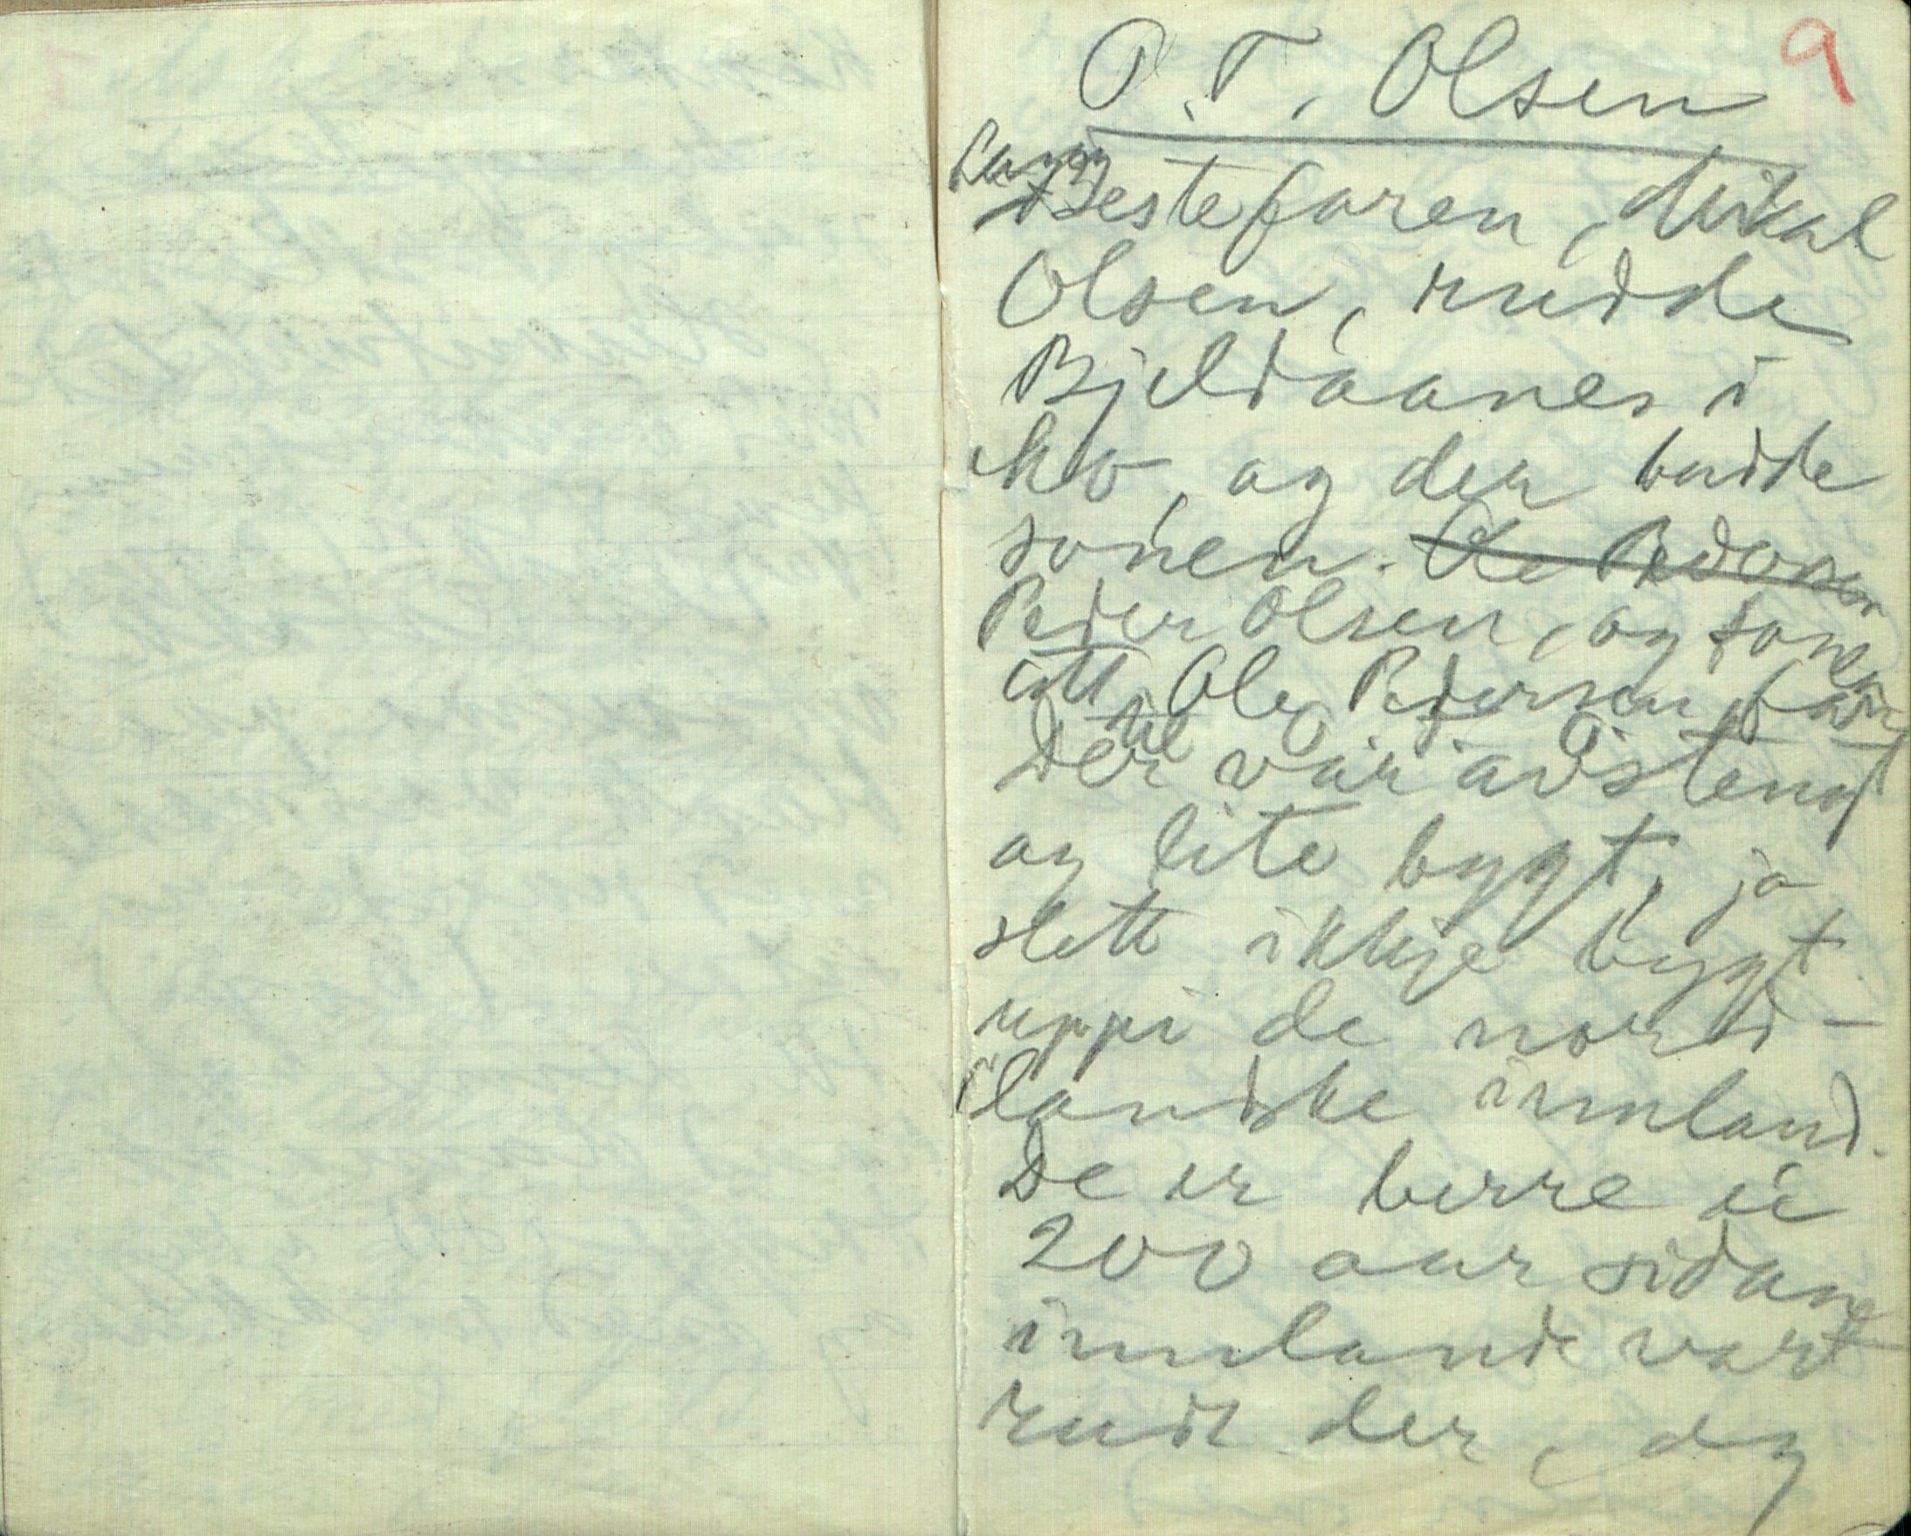 O. T. Olsen
9
Lang
Bestefaren, Mikal
Olsen, rudde
Bjeldaanes i
Mo, og der budde
sonen. Ole Pedersen
Peder Olsen, og sonen
att, Ole Pedersen, far
til
Der var avstengt
og lite bygt, ja
slett ikkje bygt
uppi de nord-
landske innland.
De er berre ei
200 aar sidan
innlande vart
rudt der, og